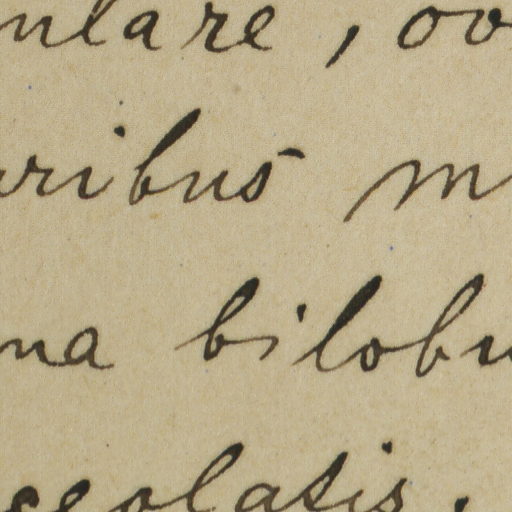 nlare, ov
ribus m
na bilobu
ceolatis,